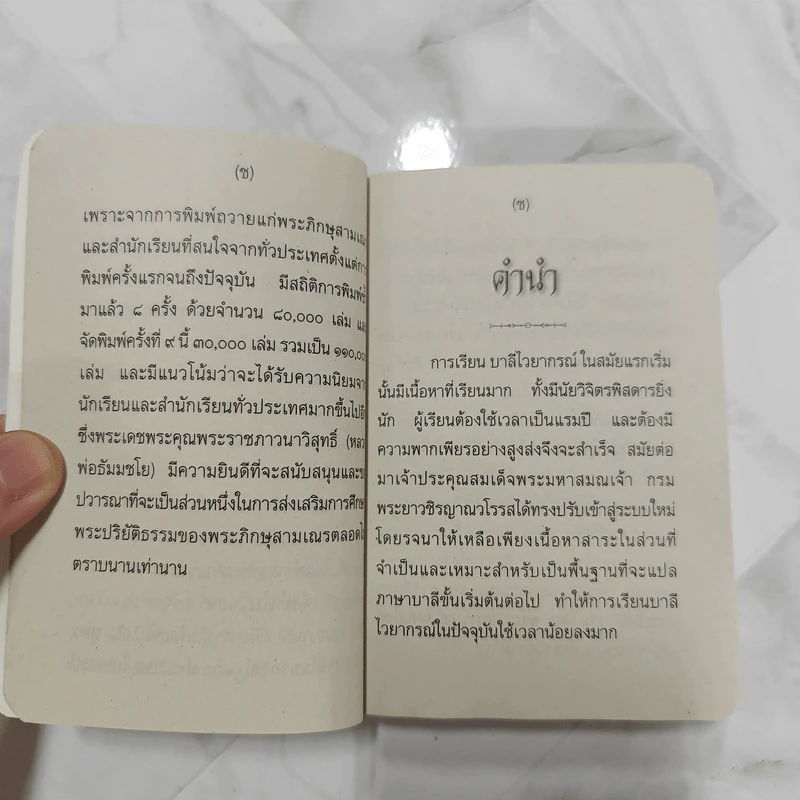 (ช)
เพราะจากการพิมพ์ถวายแก่พระภิกษุสามเณร
และสำนักเรียนที่สนใจจากทั่วประเทศตั้งแต่การ
พิมพ์ครั้งแรกจนถึงปัจจุบัน มีสถิติการพิมพ์
มาแล้ว ๘ ครั้ง ด้วยจำนวน ๘๐,๐๐๐ เล่ม และ
จัดพิมพ์ครั้งที่ ๙ นี้ ๓๐,๐๐๐ เล่ม รวมเป็น ๑๑๐,๐๐๐
เล่ม และมีแนวโน้มว่าจะได้รับความนิยมจาก
นักเรียนและสำนักเรียนทั่วประเทศมากขึ้นไปอีก
ซึ่งพระเดชพระคุณพระราชภาวนาวิสุทธิ์ (หลวง
พ่อธัมมชโย) มีความยินดีที่จะสนับสนุนและขอ
ปวารณาที่จะเป็นส่วนหนึ่งในการส่งเสริมการศึกษา
พระปริยัติธรรมของพระภิกษุสามเณรตลอดไป
ตราบนานเท่านาน
(ซ)
คำนำ
การเรียน บาลีไวยากรณ์ ในสมัยแรกเริ่ม
นั้นมีเนื้อหาที่เรียนมาก ทั้งมีนัยวิจิตรพิสดารยิ่ง
นัก ผู้เรียนต้องใช้เวลาเป็นแรมปี และต้องมี
ความพากเพียรอย่างสูงส่งจึงจะสำเร็จ สมัยต่อ
มาเจ้าประคุณสมเด็จพระมหาสมณเจ้า กรม
พระยาวชิรญาณวโรรสได้ทรงปรับเข้าสู่ระบบใหม่
โดยรจนาให้เหลือเพียงเนื้อหาสาระในส่วนที่
จำเป็นและเหมาะสำหรับเป็นพื้นฐานที่จะแปล
ภาษาบาลีขั้นเริ่มต้นต่อไป ทำให้การเรียนบาลี
ไวยากรณ์ในปัจจุบันใช้เวลาน้อยลงมาก